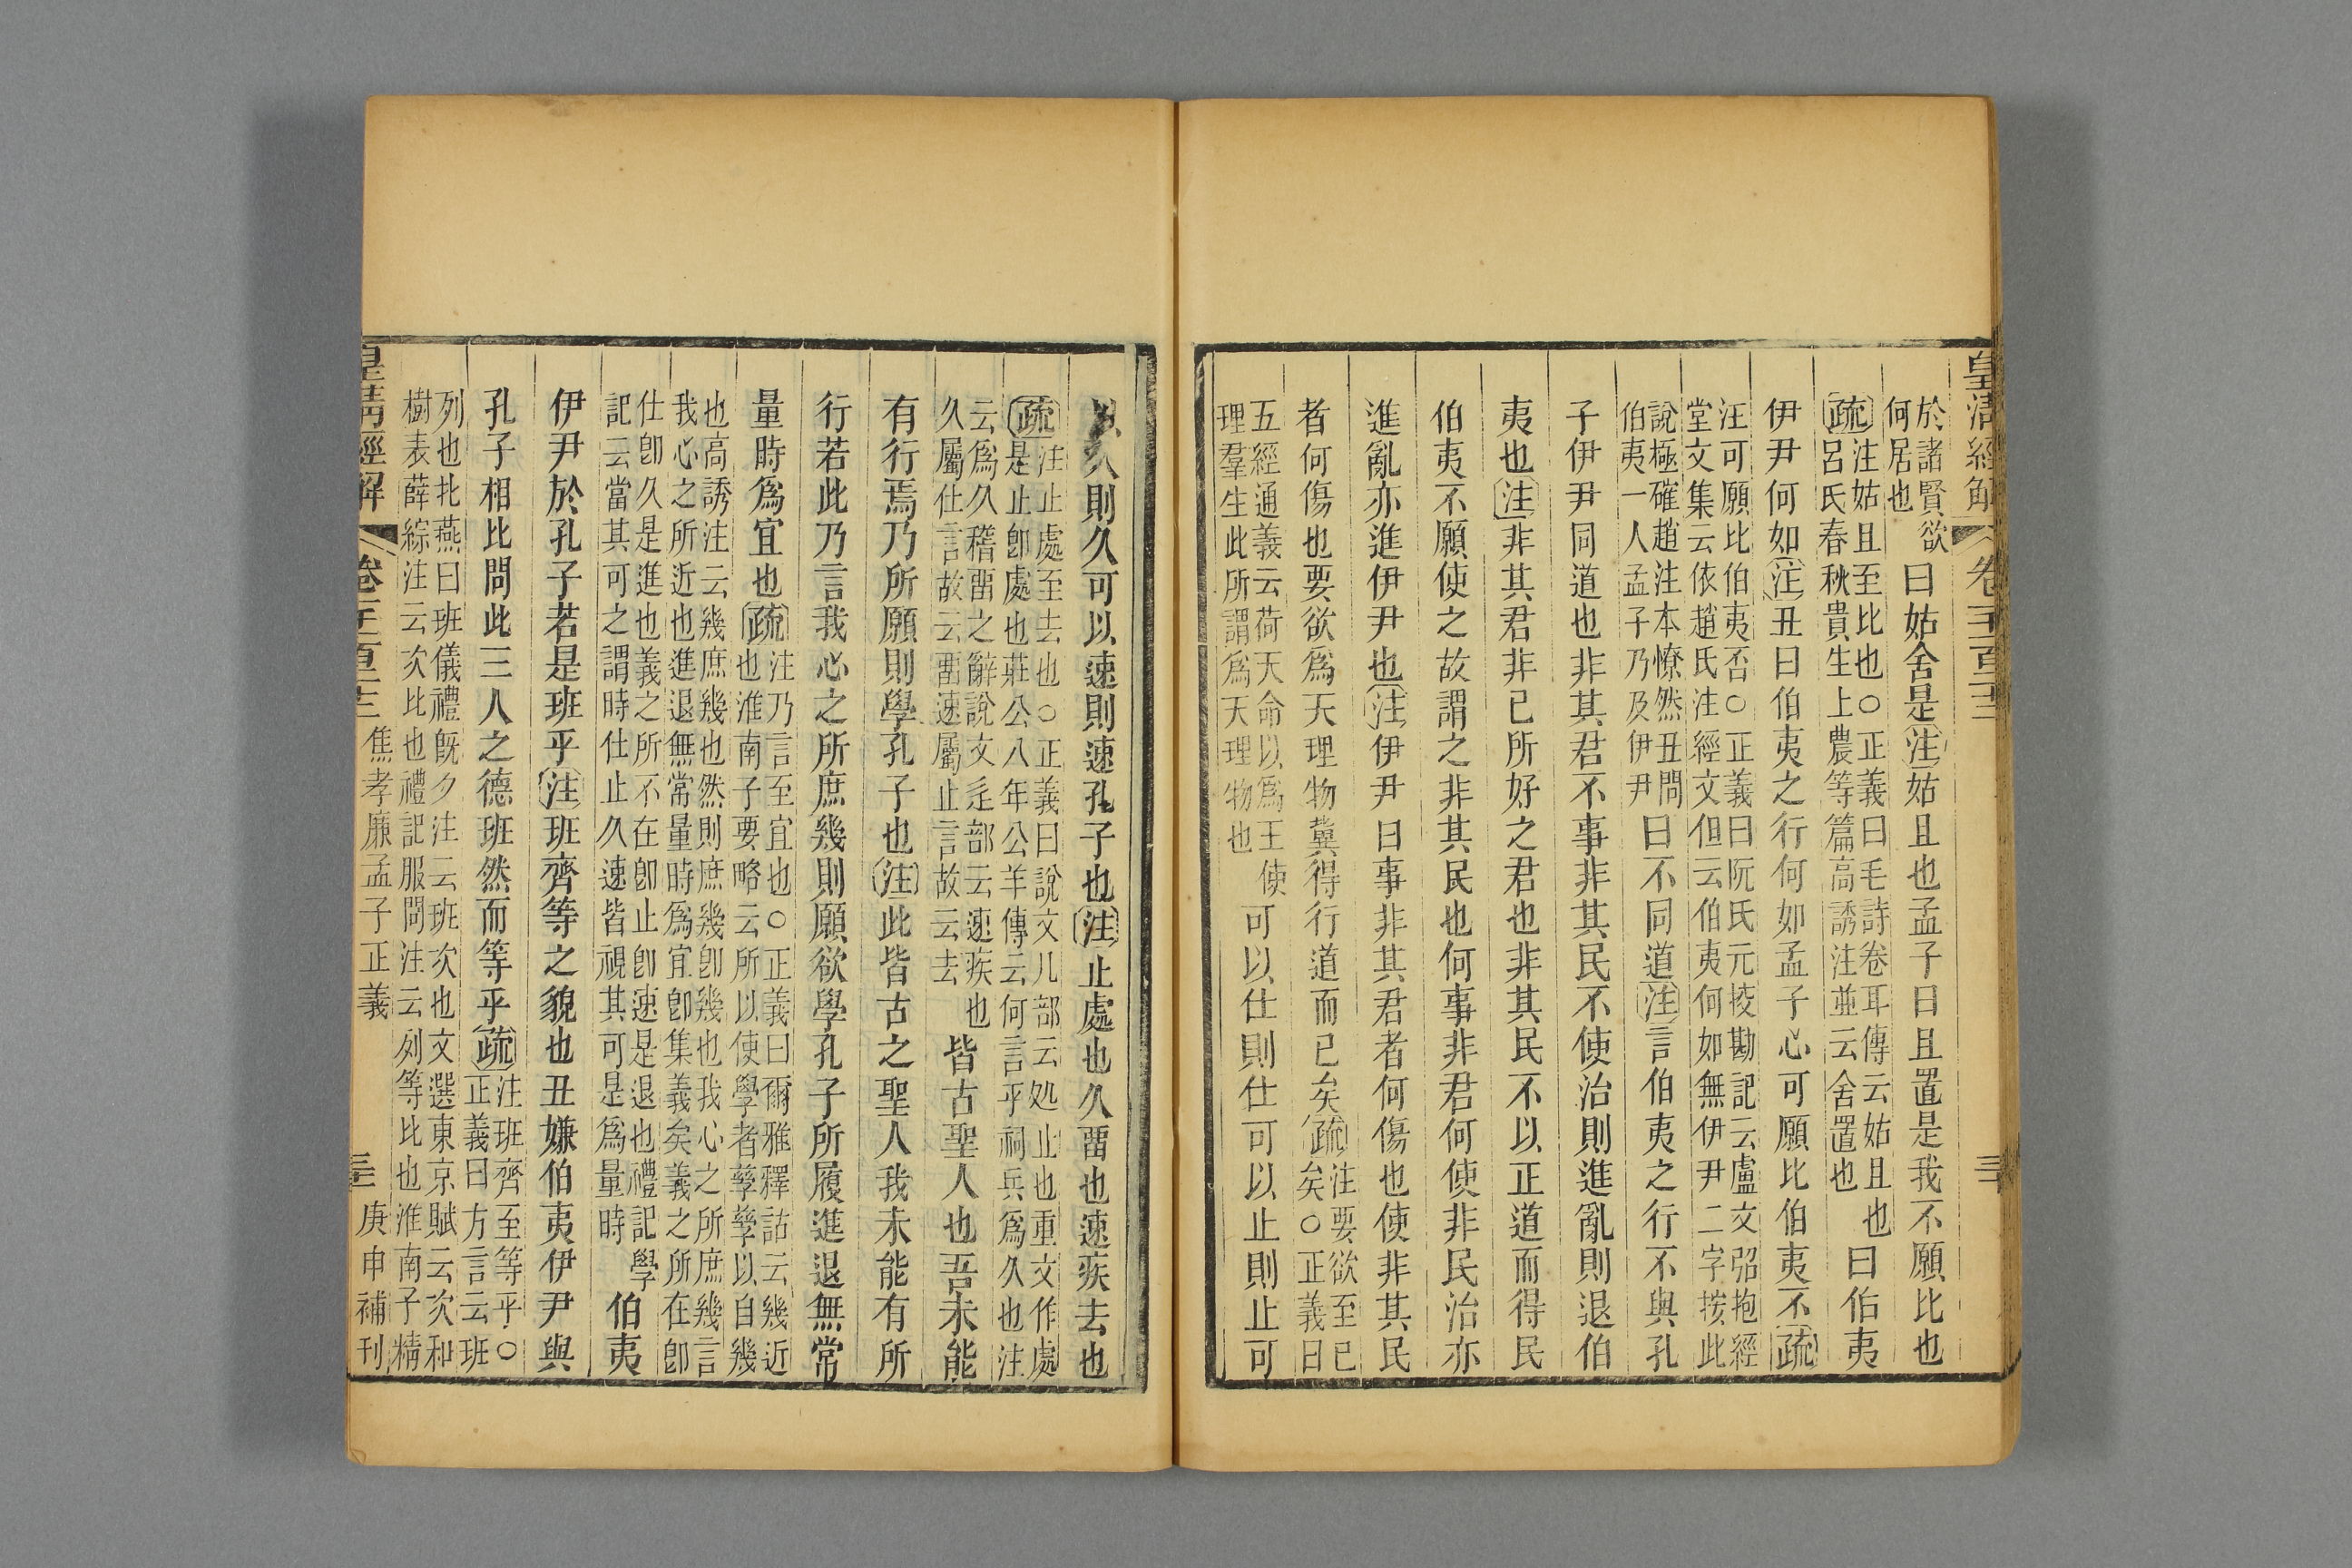 皇清經解 卷一千一百二十三 三十
於諸賢欲
何居也
曰姑舍是注姑且也孟子曰且置是我不願比也
疏
注姑且至比也○正義曰毛詩卷耳傳云姑且也
呂氏春秋貴生上農等篇高誘注並云舍置也
曰伯夷
伊尹何如注丑曰伯夷之行何如孟子心可願比伯夷不疏
注可願比伯夷否○正義曰阮氏元挍勘記云盧文弨抱經
堂文集云依趙氏注經文但云伯夷何如無伊尹二字按此
說極確趙注本憭然丑問
伯夷一人孟子乃及伊尹
曰不同道注言伯夷之行不與孔
子伊尹同道也非其君不事非其民不使治則進亂則退伯
夷也注非其君非己所好之君也非其民不以正道而得民
伯夷不願使之故謂之非其民也何事非君何使非民治亦
進亂亦進伊尹也注伊尹曰事非其君者何傷也使非其民
者何傷也要欲爲天理物冀得行道而已矣疏
注要欲至已
矣○正義曰
五經通義云荷天命以爲王使
理羣生此所謂爲天理物也
可以仕則仕可以止則止可
以久則久可以速則速孔子也注止處也久畱也速疾去也
疏
注止處至去也○正義曰說文几部云処止也重文作處
是止卽處也莊公八年公羊傳云何言乎祠兵爲久也注
云爲久稽畱之辭說文辵部云速疾也
久屬仕言故云畱速屬止言故云去
皆古聖人也吾未能
有行焉乃所願則學孔子也注此皆古之聖人我未能有所
行若此乃言我心之所庶幾則願欲學孔子所履進退無常
量時爲宜也疏
注乃言至宜也○正義曰爾雅釋詁云幾近
也淮南子要略云所以使學者孳孳以自幾
也高誘注云幾庶幾也然則庶幾卽幾也我心之所庶幾言
我心之所近也進退無常量時爲宜卽集義矣義之所在卽
仕卽久是進也義之所不在卽止卽速是退也禮記學
記云當其可之謂時仕止久速皆視其可是爲量時
伯夷
伊尹於孔子若是班乎注班齊等之貌也丑嫌伯夷伊尹與
孔子相比問此三人之德班然而等乎疏
注班齊至等乎○
正義曰方言云班
列也北燕曰班儀禮旣夕注云班次也文選東京賦云次和
樹表薛綜注云次比也禮記服問注云列等比也淮南子精
皇清經解 卷一千一百二十三 焦孝廉孟子正義 三十 庚申補刊